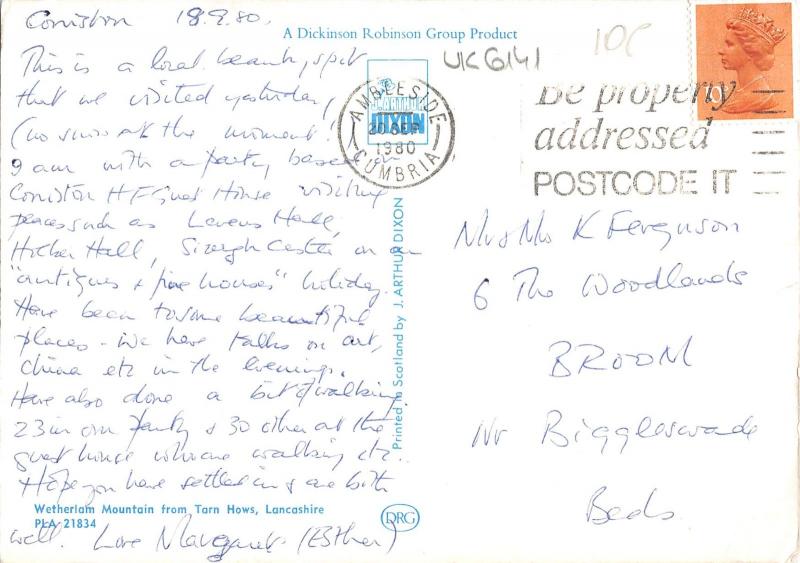 Coniston 18.9.80.
A Dickinson Robinson Group Product
This is a local beauty spot
that we visited yesterday
(no snow at the moment!
9 am with a party based in
Coniston HF Guest House visiting
places such as Levens Hall,
Holker Hall, Sizergh Castle on an
"antiques + fine houses" holiday.
Have been to some beautiful
places - we have talks on art,
china etc in the evenings.
Have also done a bit of walking.
23 in our party & 30 other at the
guest house who are walking etc..
Hope you have settled in & are both
well. Love Margaret (Esther)
Wetherlam Mountain from Tarn Hows, Lancashire
PLA 21834
J. ARTHUR
DIXON
Printed in Scotland by J. ARTHUR DIXON
DRG
UKG141
10C
AMBLESIDE
20 SEP
1980
CUMBRIA
Be properly
addressed
POSTCODE IT
Mr & Mrs K Ferguson
6 The Woodlands
BROOM
Nr Biggleswade
Beds